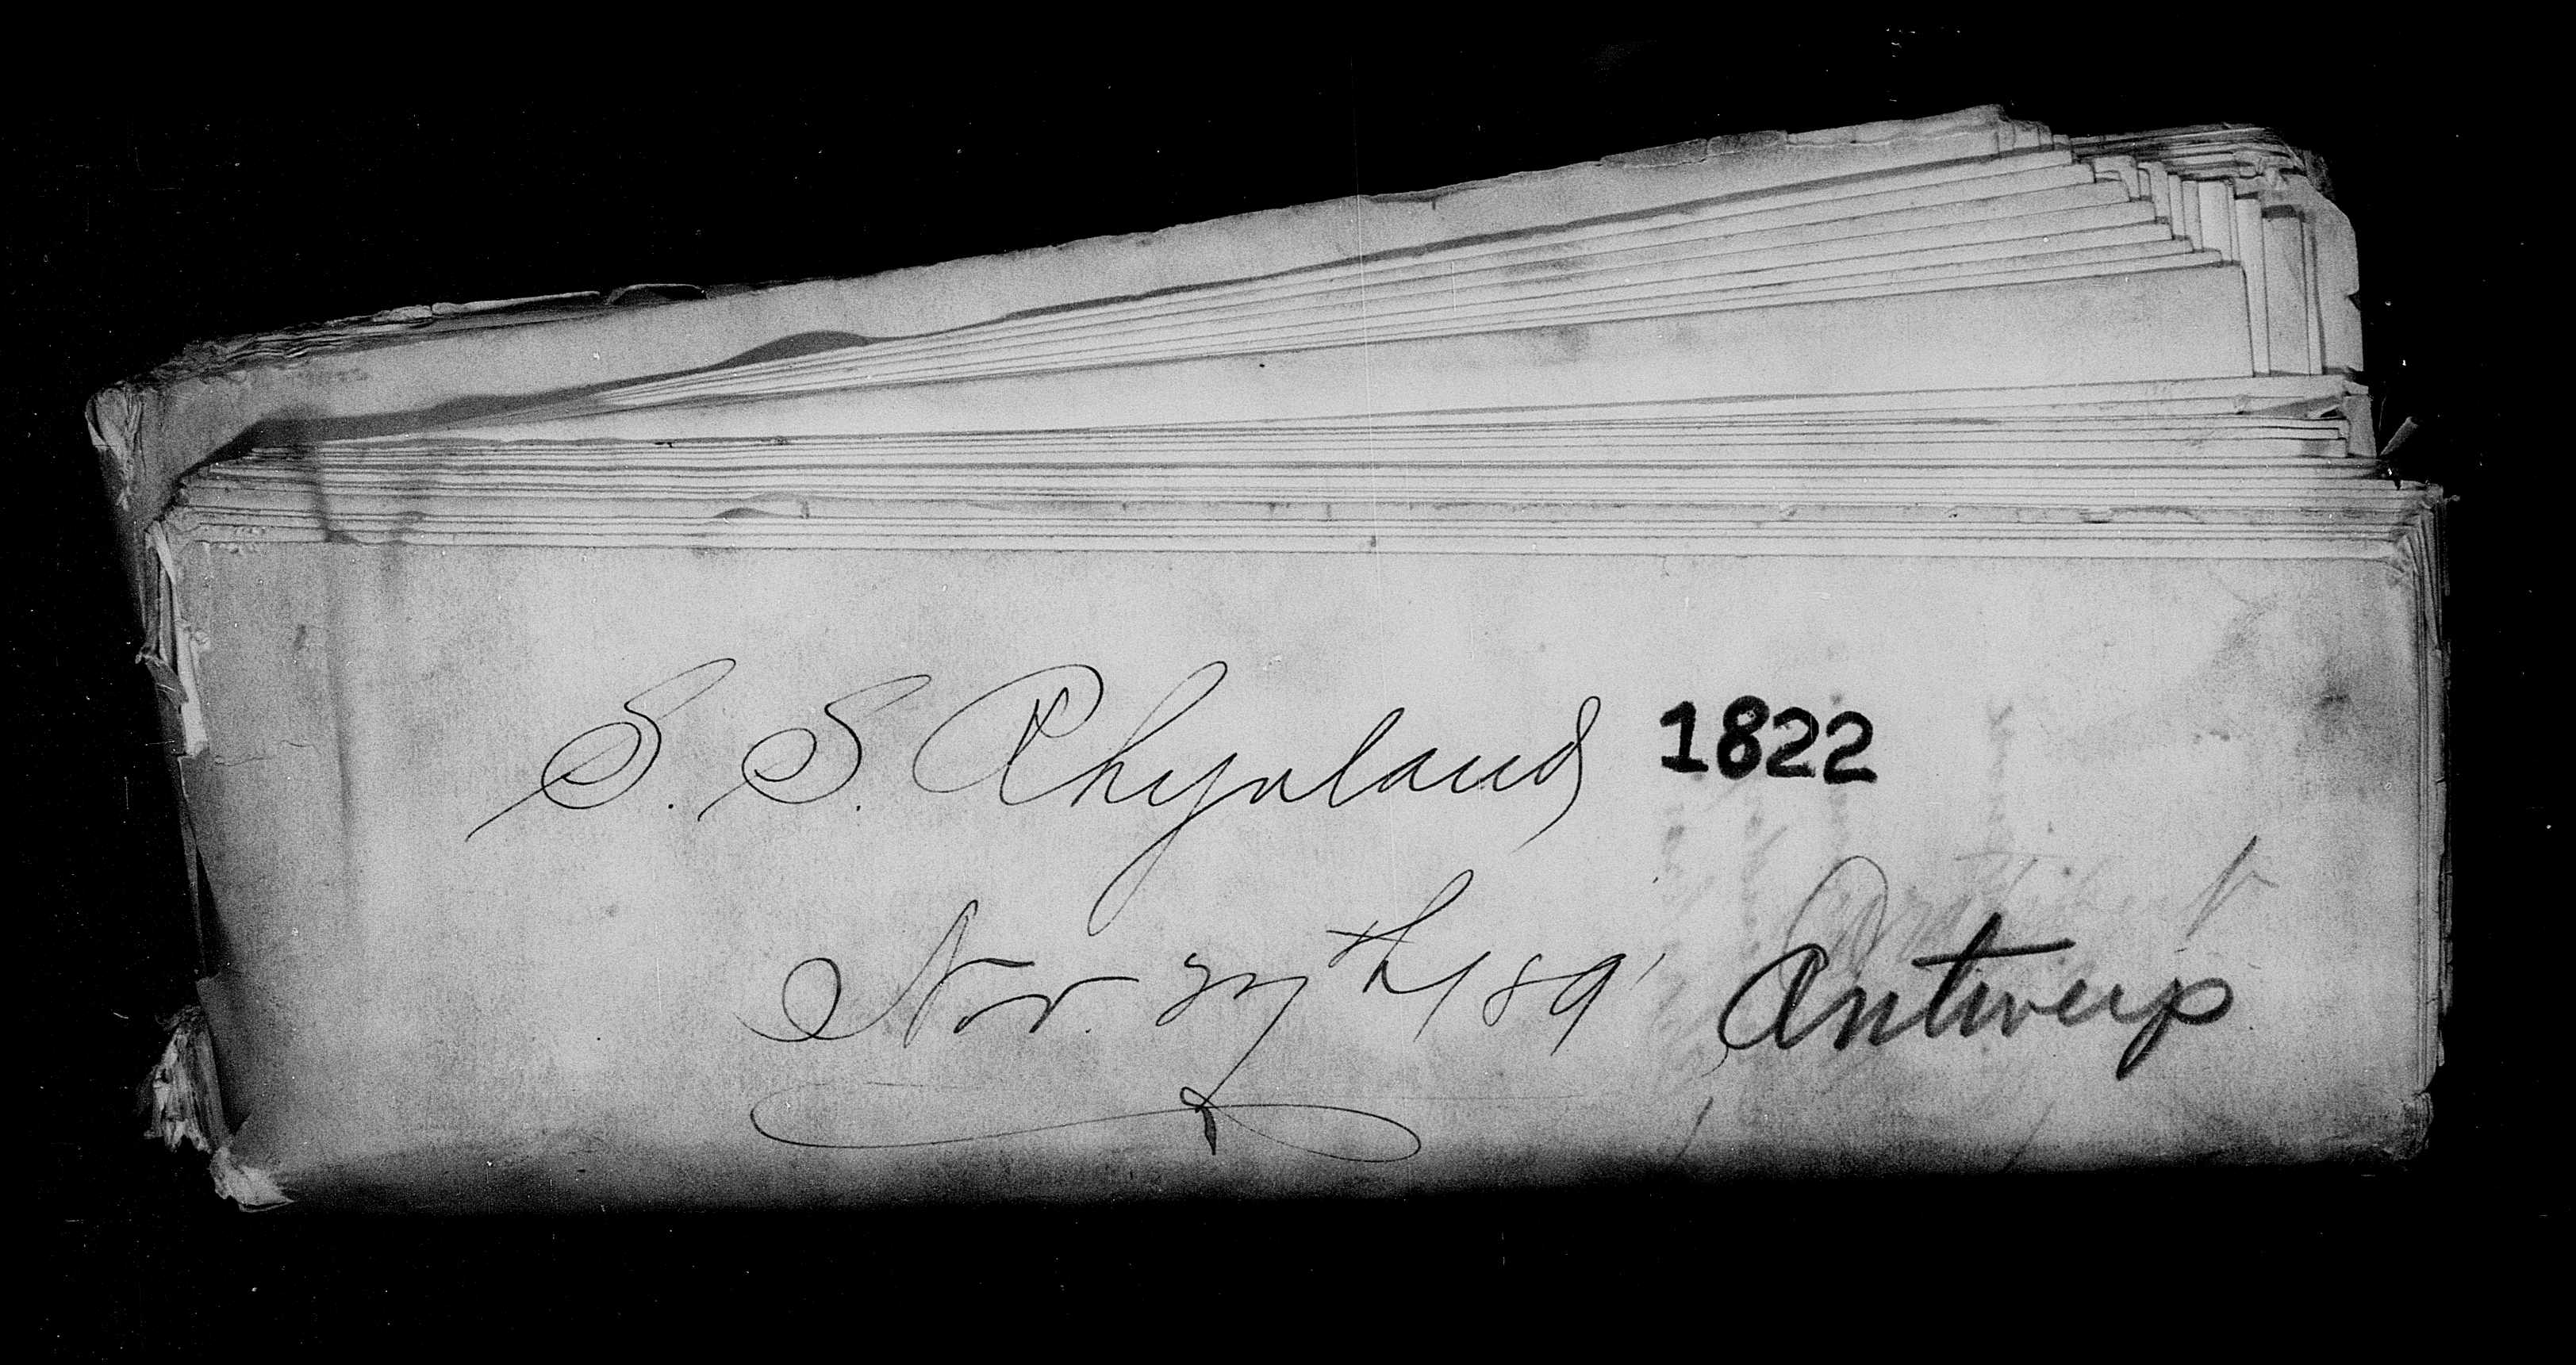 S. S. Rhynland 1822
Nov. 27th 189'
Antwerp